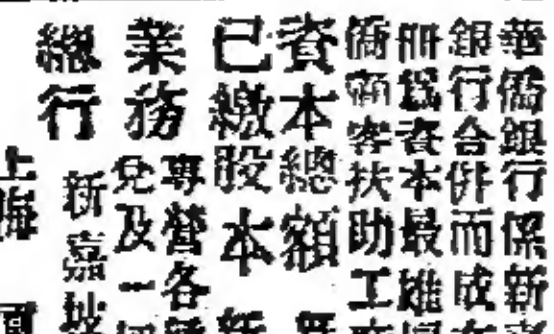 華僑銀行係新
銀行合併而成
冊為資本最雄
僑顧客扶助工
資本總額
已繳股本
業務
專營各種
兌及一切
總行
新嘉坡
上海